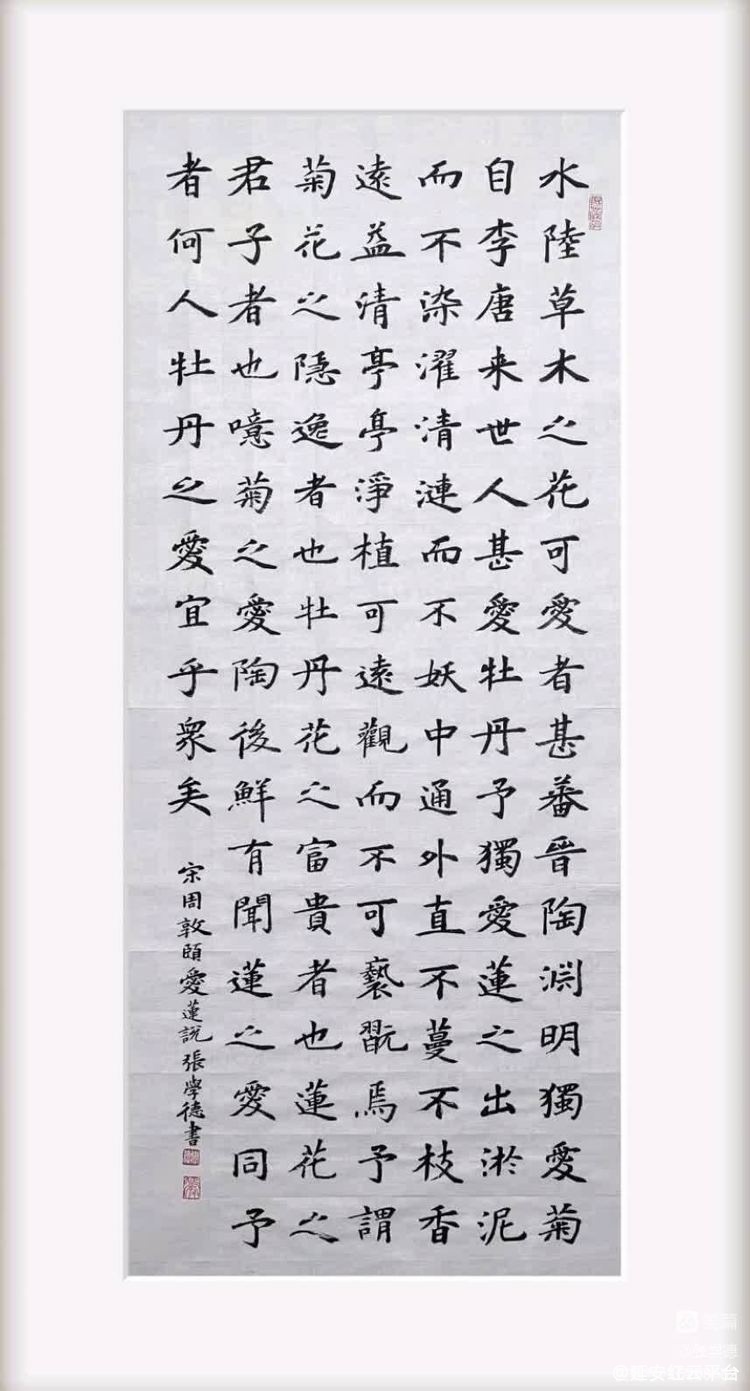 水陸草木之花可愛者甚蕃晉陶渊明獨愛菊
自李唐来世人甚愛牡丹予獨愛蓮之出淤泥
而不染濯清漣而不妖中通外直不蔓不枝香
遠益清亭亭淨植可遠觀而不可褻翫焉予謂
菊花之隱逸者也牡丹花之富貴者也蓮花之
君子者也噫菊之愛陶後鮮有聞蓮之愛同予
者何人牡丹之愛宜乎衆矣
宋周敦頤愛蓮説張學德書
美篇